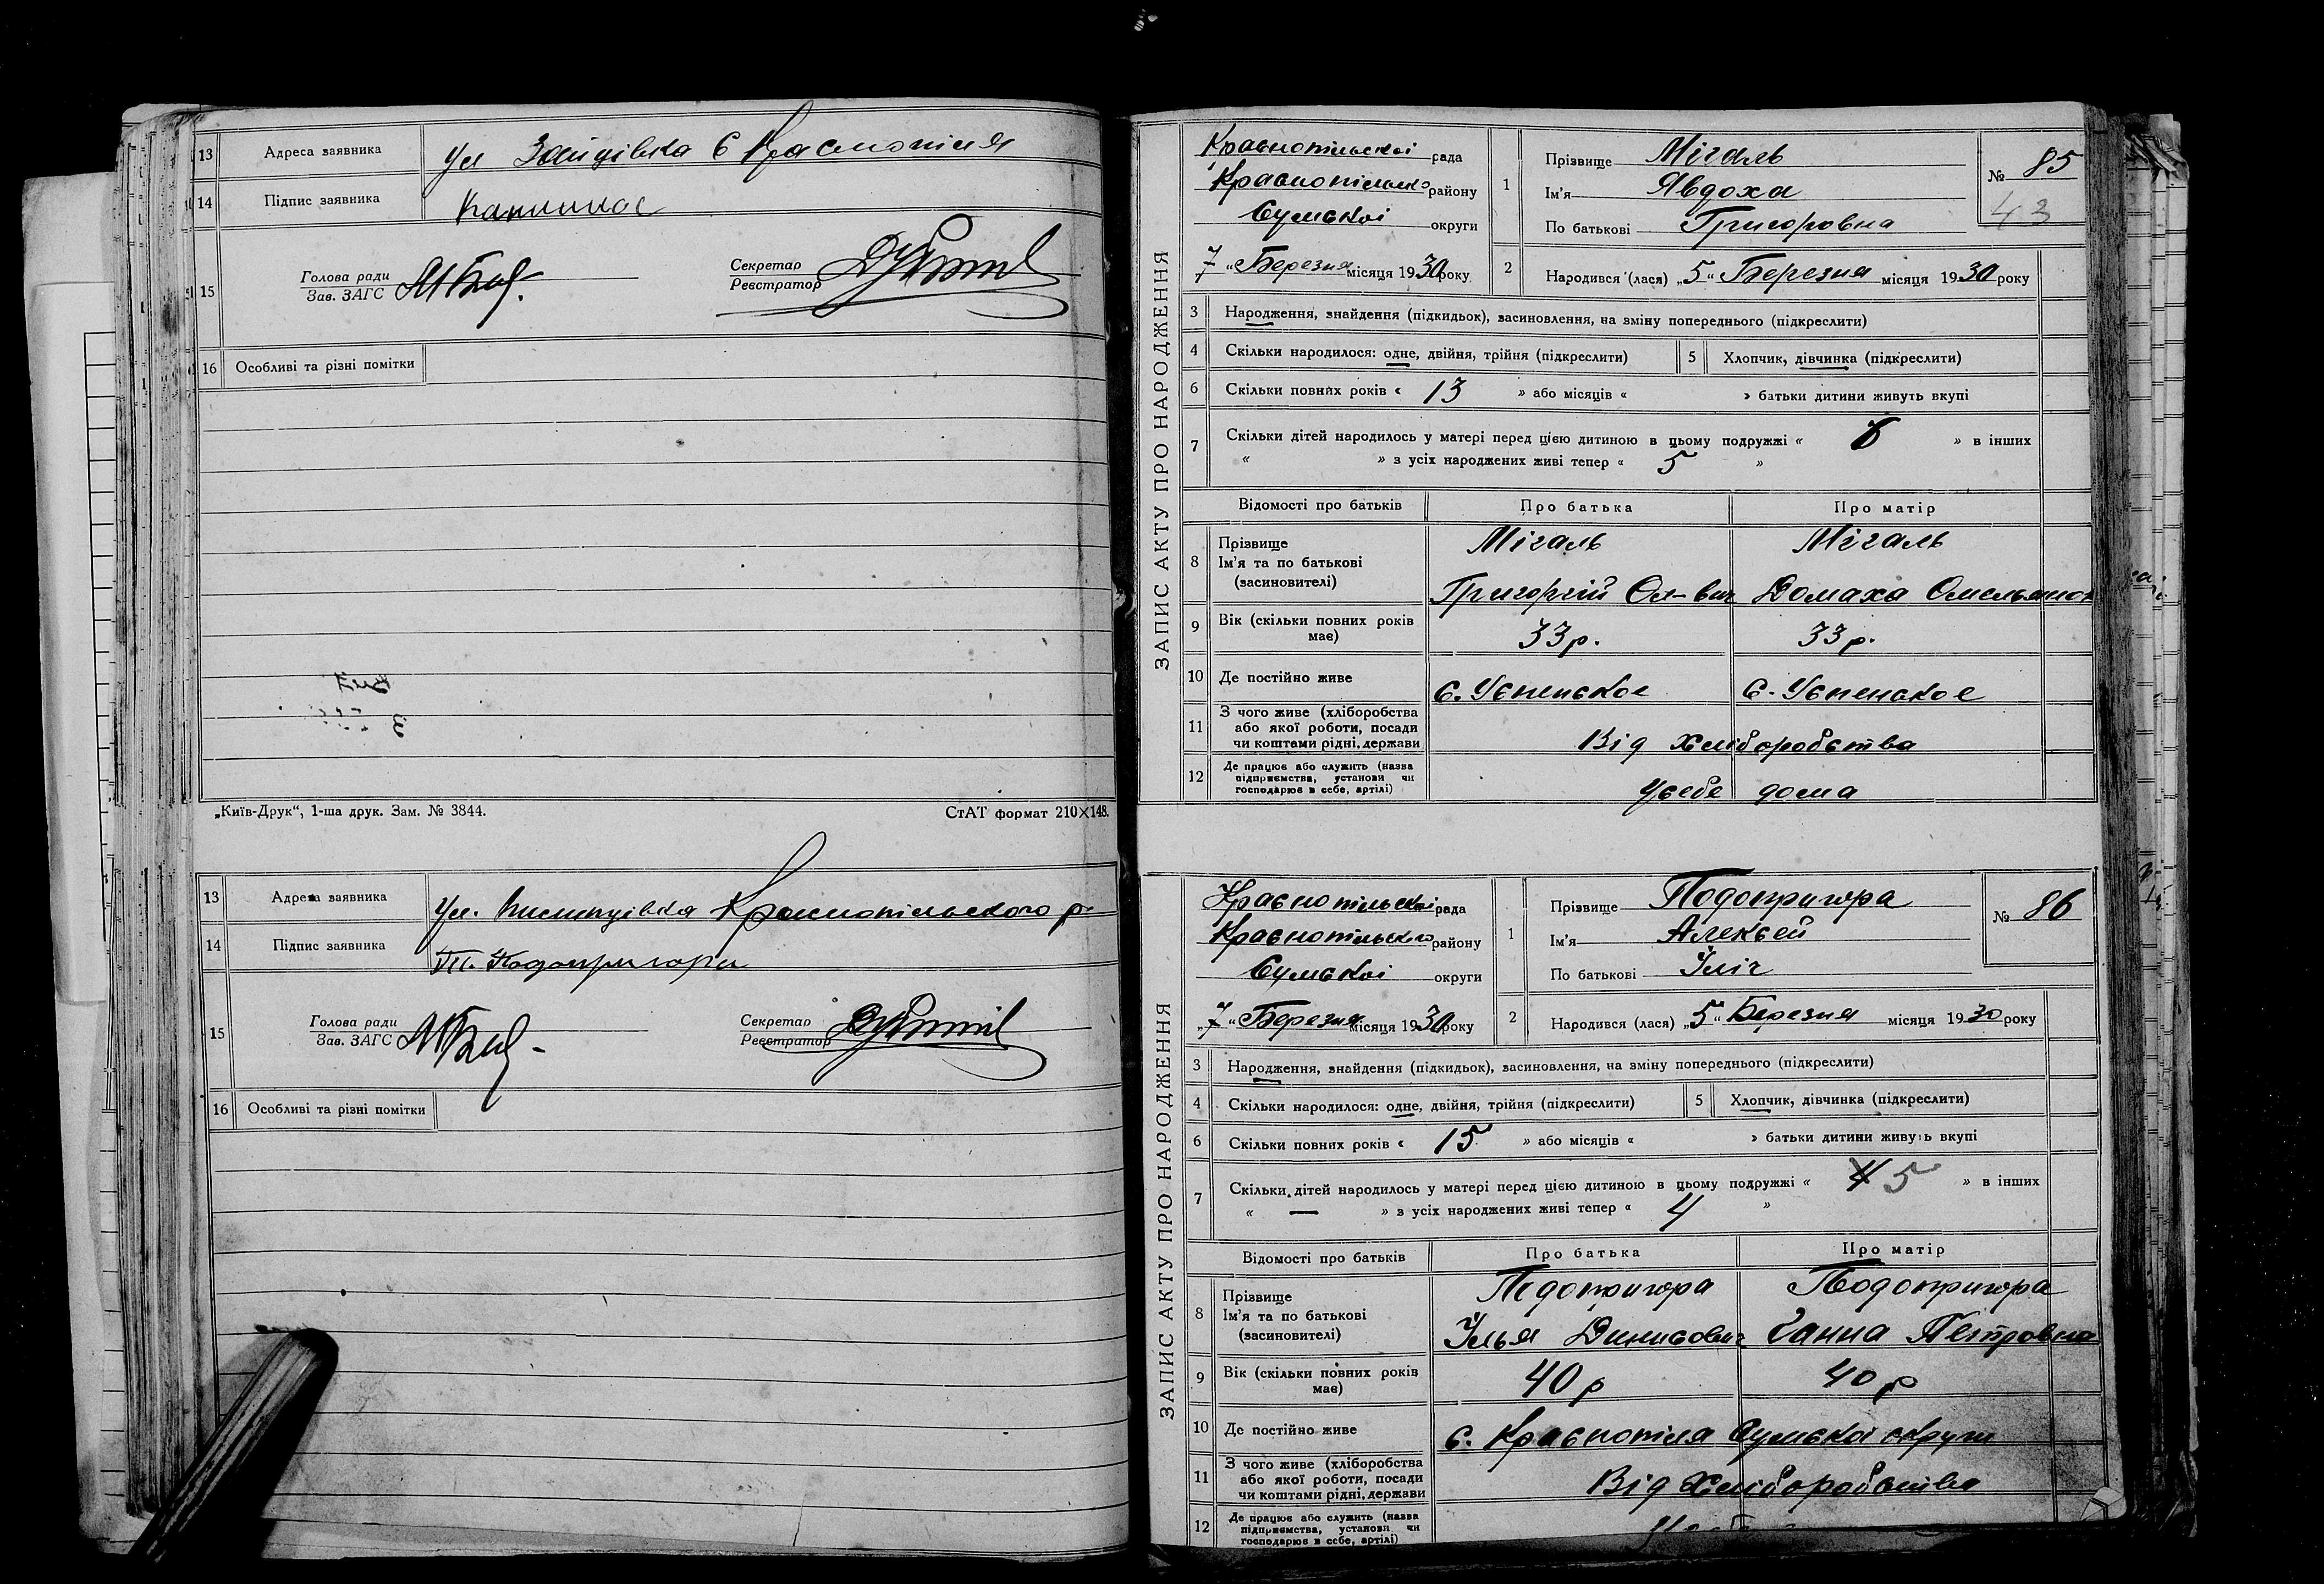 13 Адреса заявника ул Зайцівка С Краснопілля
14 Підпис заявника
15 Голова ради
Зав. ЗАГС
Секретар
Реєстратор
16 Особливі та різні помітки
„Київ-Друк“, 1-ша друк. Зам. № 3844. СтАТ формат 210×148.
13 Адреса заявника Ул. Краснопільского р
14 Підпис заявника Подопригора
15 Голова ради
Зав. ЗАГС
Секретар
Реєстратор
16 Особливі та різні помітки
ЗАПИС АКТУ ПРО НАРОДЖЕННЯ
Краснопільскоі рада
Краснопільско району
Сумскоі округи
„7“ Березня місяця 1930 року
1 Прізвище Мігаль
Ім'я Явдоха
По батькові Григоровна
№ 85
43
2 Народився (лася) „5“ Березня місяця 1930 року
3 Народження, знайдення (підкидьок), засиновлення, на зміну попереднього (підкреслити)
4 Скільки народилося: одне, двійня, трійня (підкреслити) 5 Хлопчик, дівчинка (підкреслити)
6 Скільки повних років « 13 » або місяців « » батьки дитини живуть вкупі
7 Скільки дітей народилось у матері перед цією дитиною в цьому подружжі « » в інших
« » з усіх народжених живі тепер « 5 »
Відомості про батьків Про батька Про матір
8 Прізвище
Ім'я та по батькові
(засиновителі)
Мігаль Мігаль
Григорій Ол-вич Домаха Омельянов
9 Вік (скільки повних років має) 33 р. 33 р.
10 Де постійно живе С. Успенское С. Успенское
11 З чого живе (хліборобства
або якої роботи, посади
чи коштами рідні, держави
Від хліборобства
12 Де працює або служить (назва
підприємства, установи чи
господарює в себе, артілі)
Усебе дома
ЗАПИС АКТУ ПРО НАРОДЖЕННЯ
Краснопільскоі рада
Краснопільского району
Сумскоі округи
„7“ Березня місяця 1930 року
1 Прізвище Подопригора
Ім'я Алексей
По батькові Ілiч
№ 86
2 Народився (лася) „5“ Березня місяця 1930 року
3 Народження, знайдення (підкидьок), засиновлення, на зміну попереднього (підкреслити)
4 Скільки народилося: одне, двійня, трійня (підкреслити) 5 Хлопчик, дівчинка (підкреслити)
6 Скільки повних років « 15 » або місяців « » батьки дитини живуть вкупі
7 Скільки дітей народилось у матері перед цією дитиною в цьому подружжі « 4 5 » в інших
« — » з усіх народжених живі тепер « 4 »
Відомості про батьків Про батька Про матір
8 Прізвище
Ім'я та по батькові
(засиновителі)
Подопригора Подопригора
Ілья Динисович Ганна Петровна
9 Вік (скільки повних років має) 40 р 40 р
10 Де постійно живе С. Краснопіля Сумскоі округи
11 З чого живе (хліборобства
або якої роботи, посади
чи коштами рідні, держави
Від хліборобства
12 Де працює або служить (назва
підприємства, установи чи
господарює в себе, артілі)